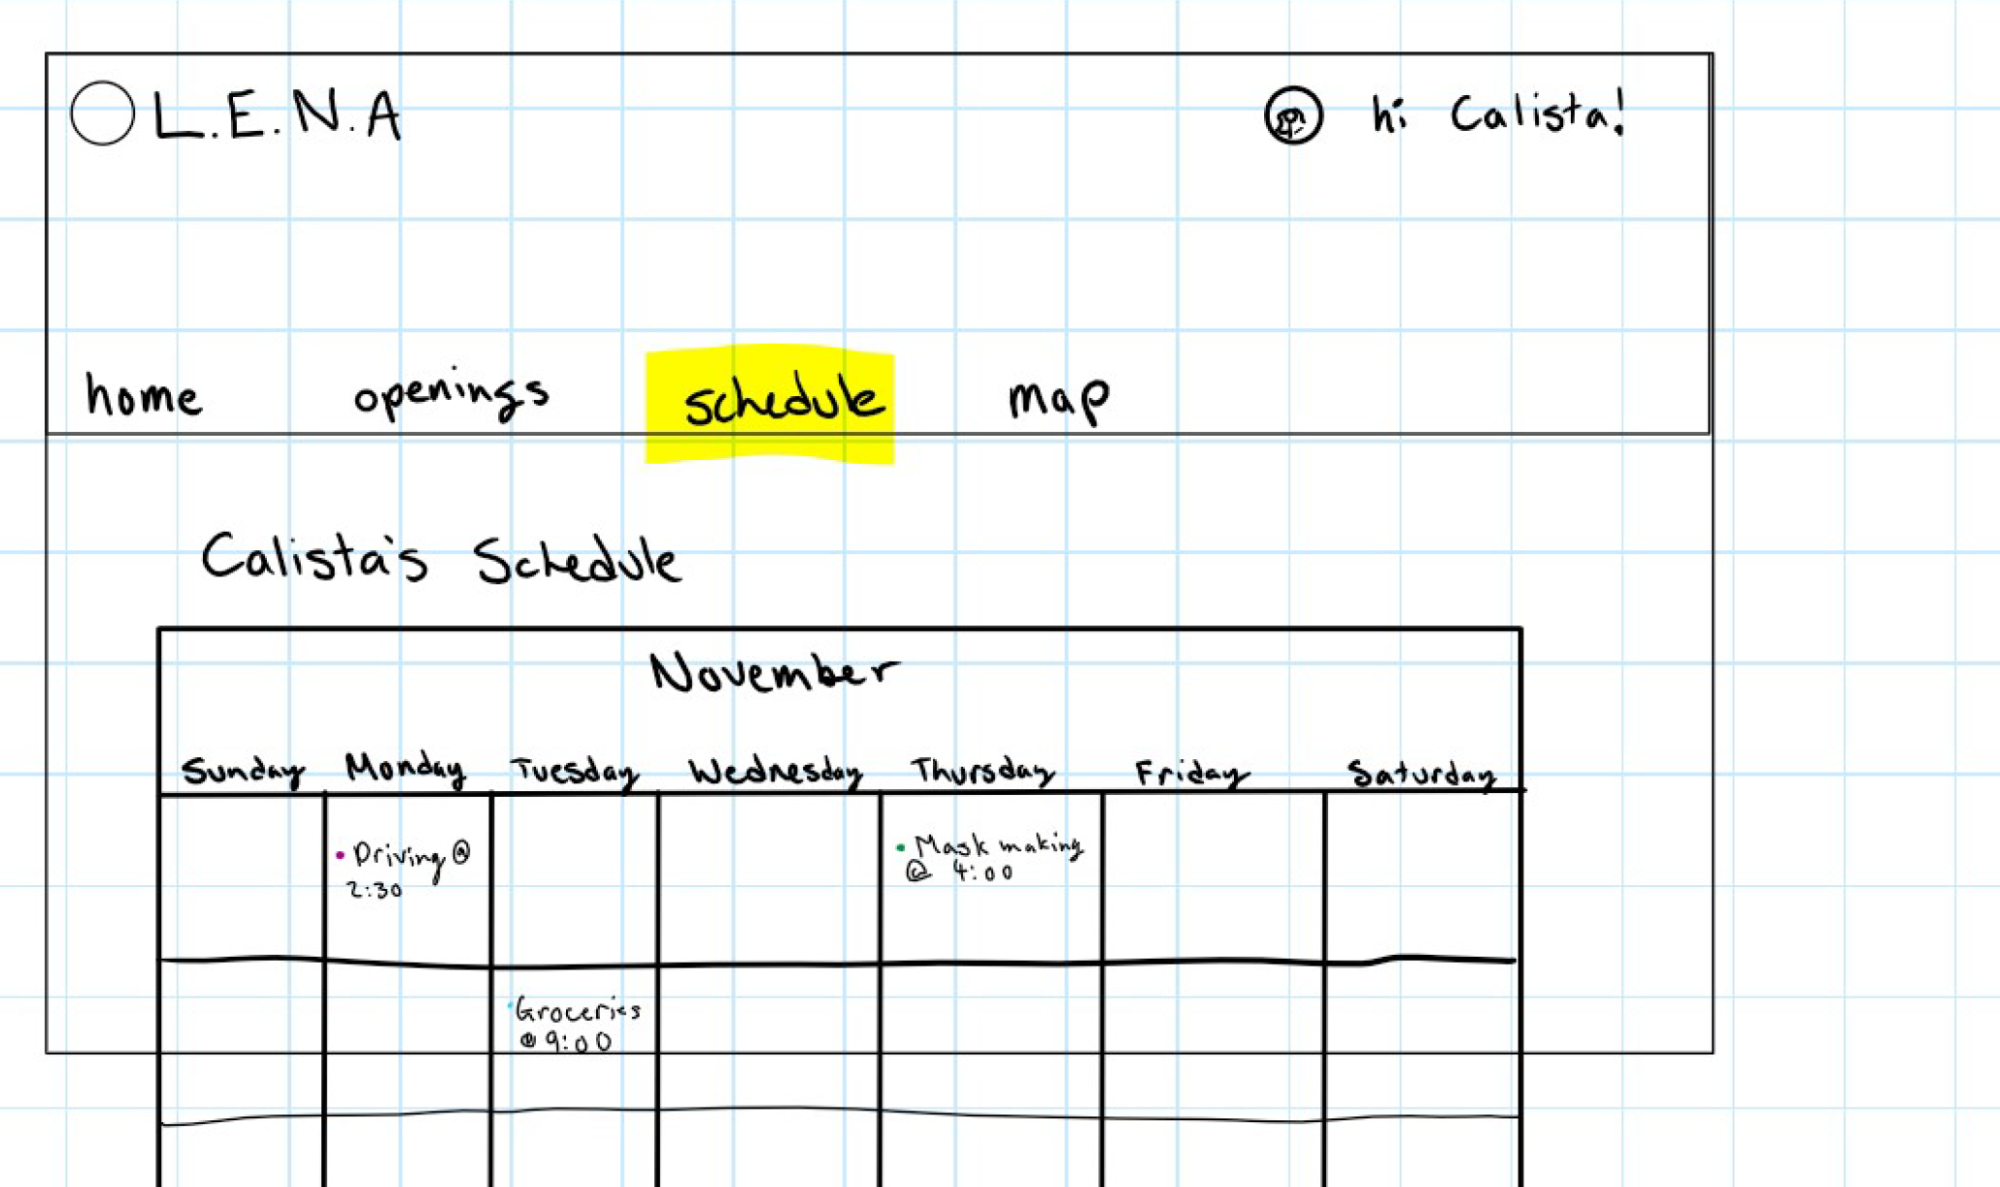 L.E.N.A hi Calista!
home openings schedule map
Calista's Schedule
November
Sunday Monday Tuesday Wednesday Thursday Friday Saturday
• Driving @
2:30
• Mask making
@ 4:00
• Groceries
@ 9:00